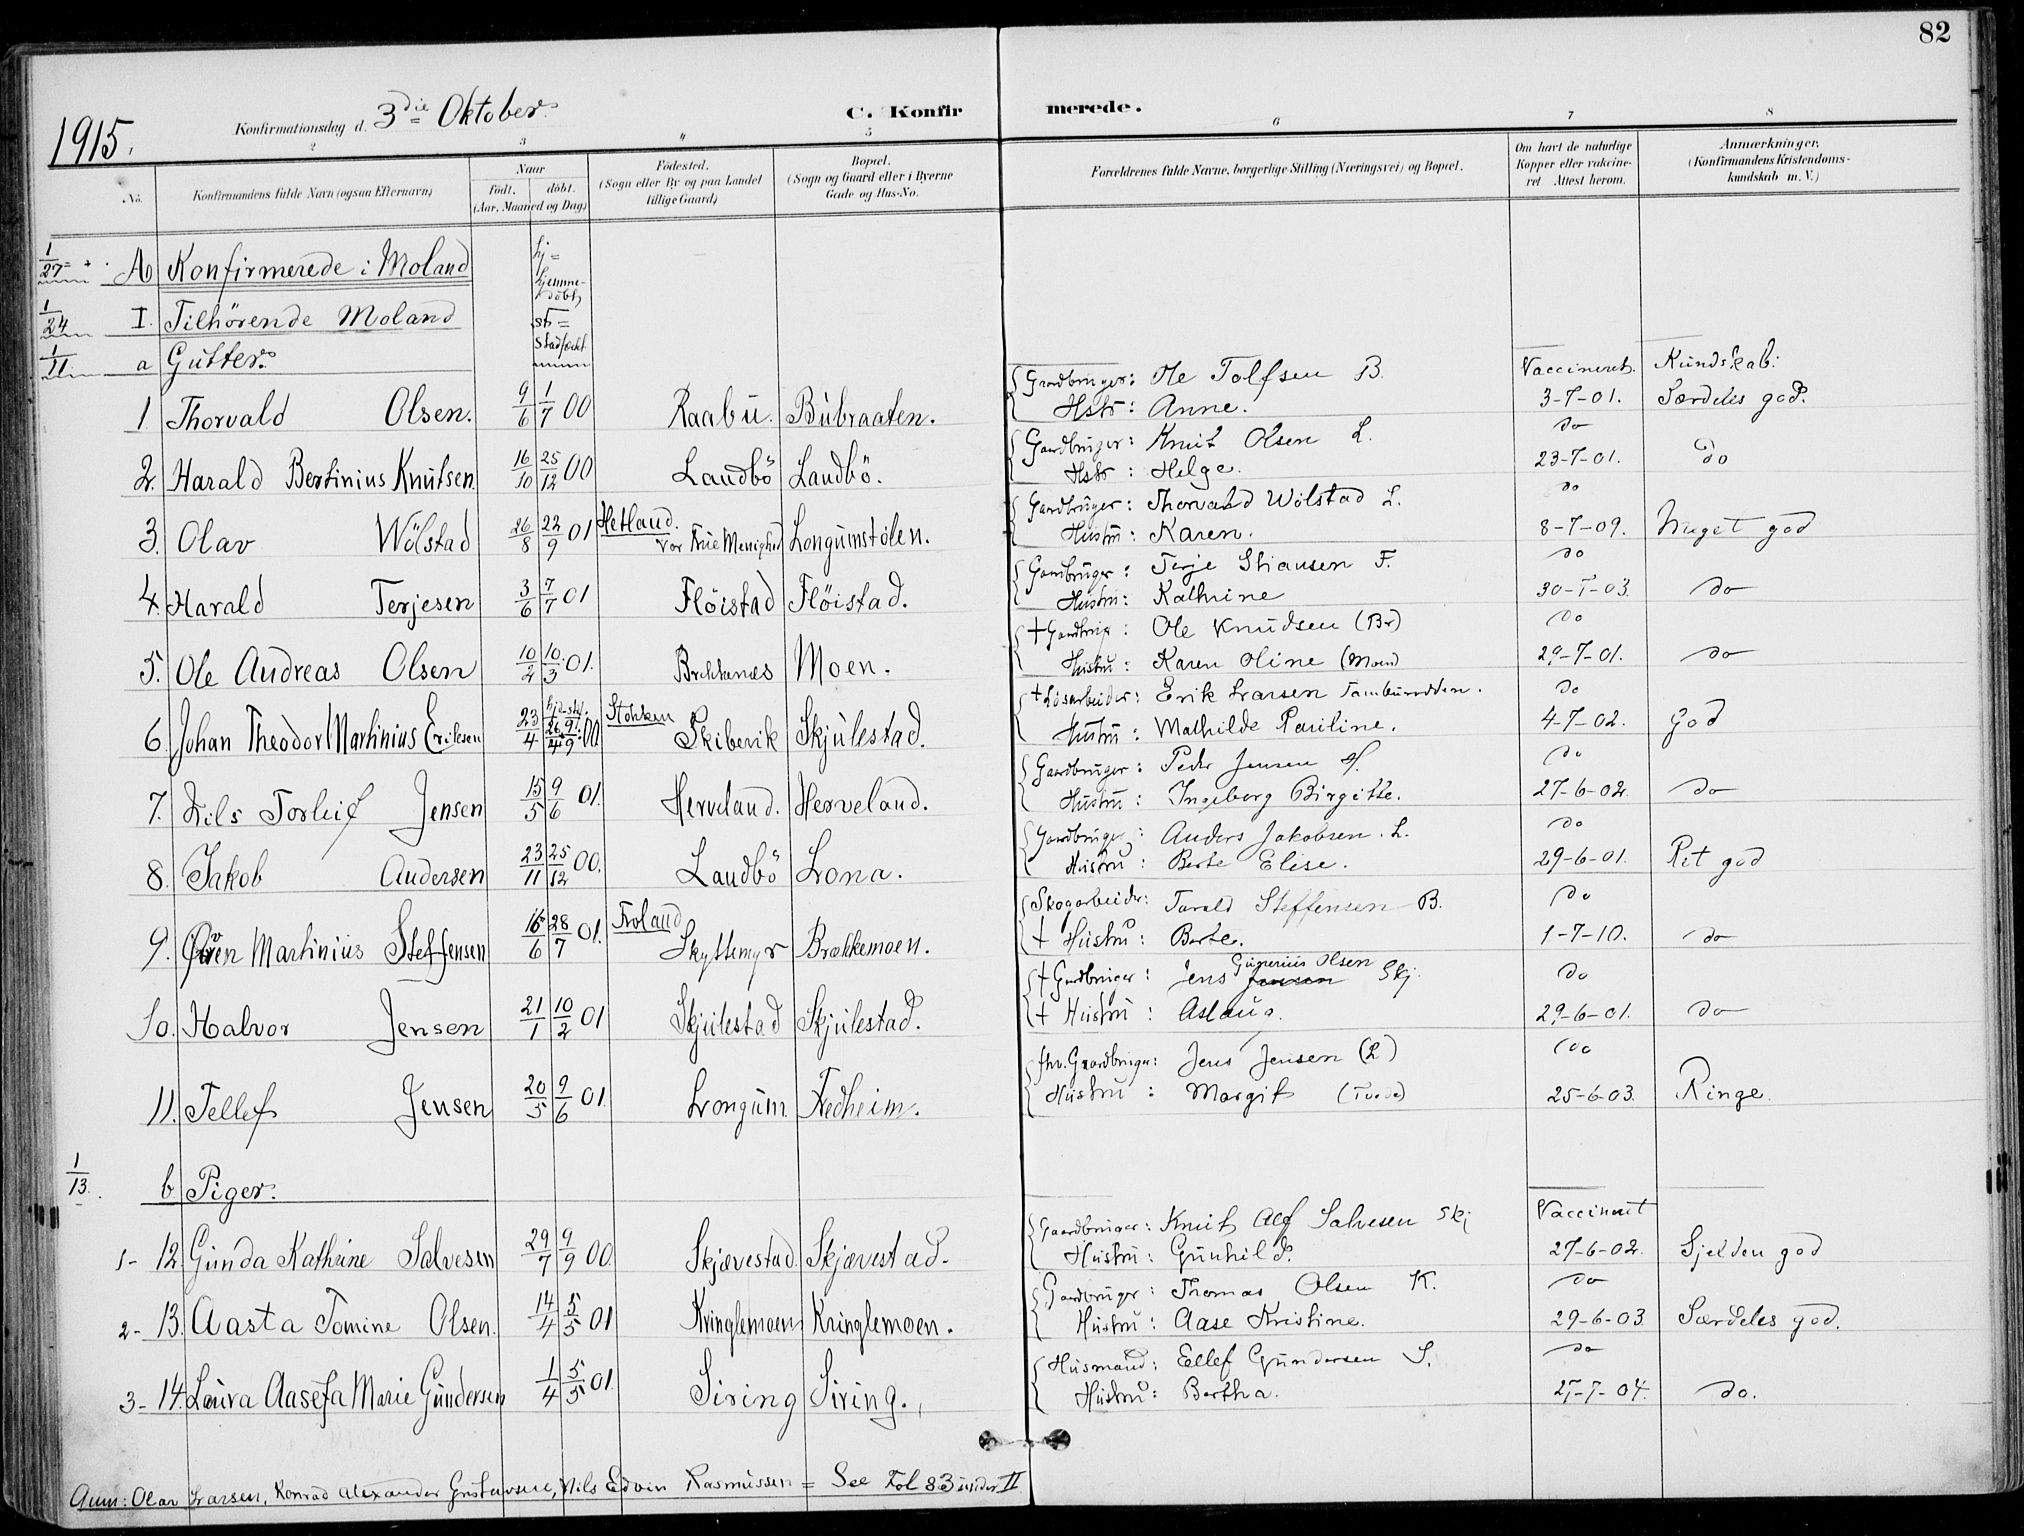 82
1915.
Konfirmationsdag d. 3die Oktober.
C. Konfirmerede.
2 3 4 5 6 7 8
No.
Konfirmandens fulde Navn (ogsaa Efternavn)
Naar
født. døbt.
(Aar, Maaned og Dag)
Fødested.
(Sogn eller By og paa Landet
tillige Gaard)
Bopæl.
(Sogn og Gaard eller i Byerne
Gade og Hus-No.
Forældrenes fulde Navne, borgerlige Stilling (Næringsvei) og Bopæl.
Om havt de naturlige
Kopper eller vakcine-
ret Attest herom.
Anmærkninger,
(Konfirmandens Kristendoms-
kundskab m. V.)
1/27 A Konfirmerede i Moland
hj =
hjemme-
døbt
1/24 I. Tilhørende Moland
st =
stadfæst
1/11 a Gutter.
Vaccineret. Kundskab:
1 Thorvald Olsen. 9/6 1/7 00 Raabu. Bubraaten. Gaardbruger: Ole Tolfsen B.
Hstr: Anne. 3-7-01. Særdeles god.
2. Harald Bertinius Knutsen 16/10 25/12 00 Landbö Landbö. Gaardbruger: Knut Olsen L. do
Hstr: Helge. 23-7-01. do
3. Olav Wölstad 26/8 22/9 01 Hetland. Vor Frue Menighed Longumstölen. Gardbruger: Thorvald Wölstad L. do
Hustru: Karen. 8-7-09. Meget god
4. Harald Terjesen 3/6 7/7 01 Flöistad Flöistad. Gardbruger: Terje Stiansen F. do
Hustru: Kathrine 30-7-03. do
5. Ole Andreas Olsen 10/2 10/3 01. Brekkenes Moen. + Gardbrug: Ole Knudsen (Br) do
Hustru: Karen Oline (Moen) 29-7-01. do
6. Johan Theodor Martinius Eriksen 23/4 26/4 9/9 00 Stokken Skibevik Skjulestad. + Løsarbeider: Erik Larsen do
Hustru: Mathilde Pauline. 4-7-02. God
7. Nils Torleif Jensen 15/5 9/6 01. Herveland. Herveland. Gardbruger: Peder Jensen H. do
Hustru: Ingeborg Birgitte. 27-6-02. do
8. Jakob Andersen 23/11 25/12 00. Landbö Lona. Gardbruger: Anders Jakobsen. L. do
Hustru: Berte Elise. 29-6-01. Ret god
9. Martinius Steffensen 16/6 28/7 01. Froland Skyttemyr Brækkemoen. Skogarbeider: Tarald Steffensen B. do
+ Hustru: Berte. 1-7-10. do
10. Halvor Jensen 21/1 10/2 01 Skjulestad Skjulestad. + Gardbruger: Jens Gunerius Olsen Jensen Skj. do
+ Hustru: Aslaug. 29-6-01. do
11. Tellef Jensen 20/5 9/6 01. Longum Fredheim. fhv. Gaardbruger: Jens Jensen (L) do
Hustru: Margit 25-6-03. Ringe.
1/13. b Piger.
Vaccineret
1- 12. Gunda Kathrine Salvesen 29/7 9/9 00. Skjævestad. Skjævestad. Gaardbruger: Knut Alf Salvesen Skj
Hustru: Gunhild. 27-6-02. Sjelden god
2- 13. Aasta Tomine Olsen. 14/4 5/5 01 Kringlemoen Kringlemoen. Gaardbruger: Thomas Olsen K. do
Hustru: Aase Kristine. 29-6-03. Særdeles god.
3- 14. Laura Aasefa Marie Gundersen 1/4 5/5 01. Siring Siring. Husmand: Ellef Gundersen S. do
Hustru: Bertha. 25-7-04. do.
Anm: Olav Larsen, Konrad Alexander Gustavsen, Nils Edvin Rasmussen = See Fol 83 under II